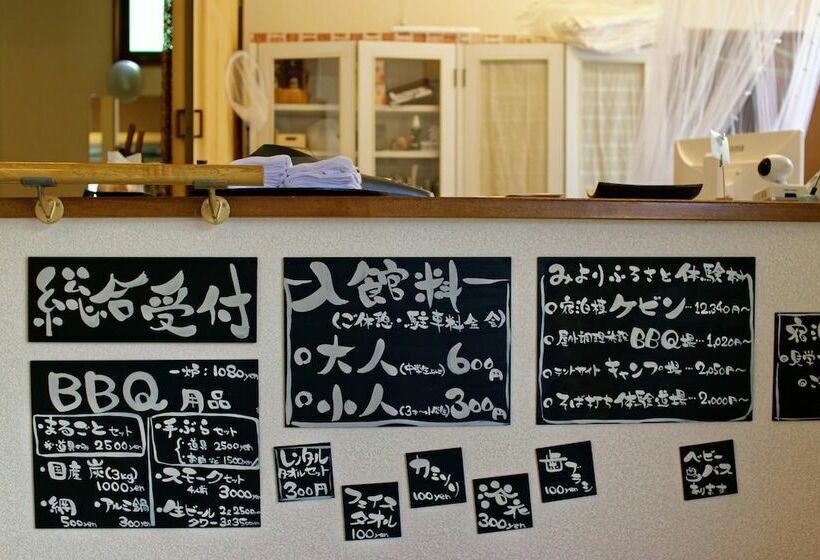 総合受付
入館料
(ご休憩・駐車料金含)
大人(中学生以上) 600円
小人(3才～小学生) 300円
みよりふるさと体験村
宿泊棟 ケビン…12,340円～
屋外調理施設 BBQ場…1,020円～
テントサイト キャンプ場…2,050円～
そば打ち体験道場…2,000円～
BBQ用品
一炉:1080yen
・まるごとセット
2500yen
・手ぶらセット
道具 2500yen
1500yen
・国産炭(3kg)
1000yen
・スモークセット
3000yen
・網
500yen
・アルミ鍋
300yen
・生ビール 2ℓ2500yen
タワー 3ℓ3500yen
レンタル
タオルセット
300円
フェイス
タオル
100yen
カミソリ
100yen
浴衣
300yen
歯ブラシ
100yen
ベビー
バス
あります
宿泊